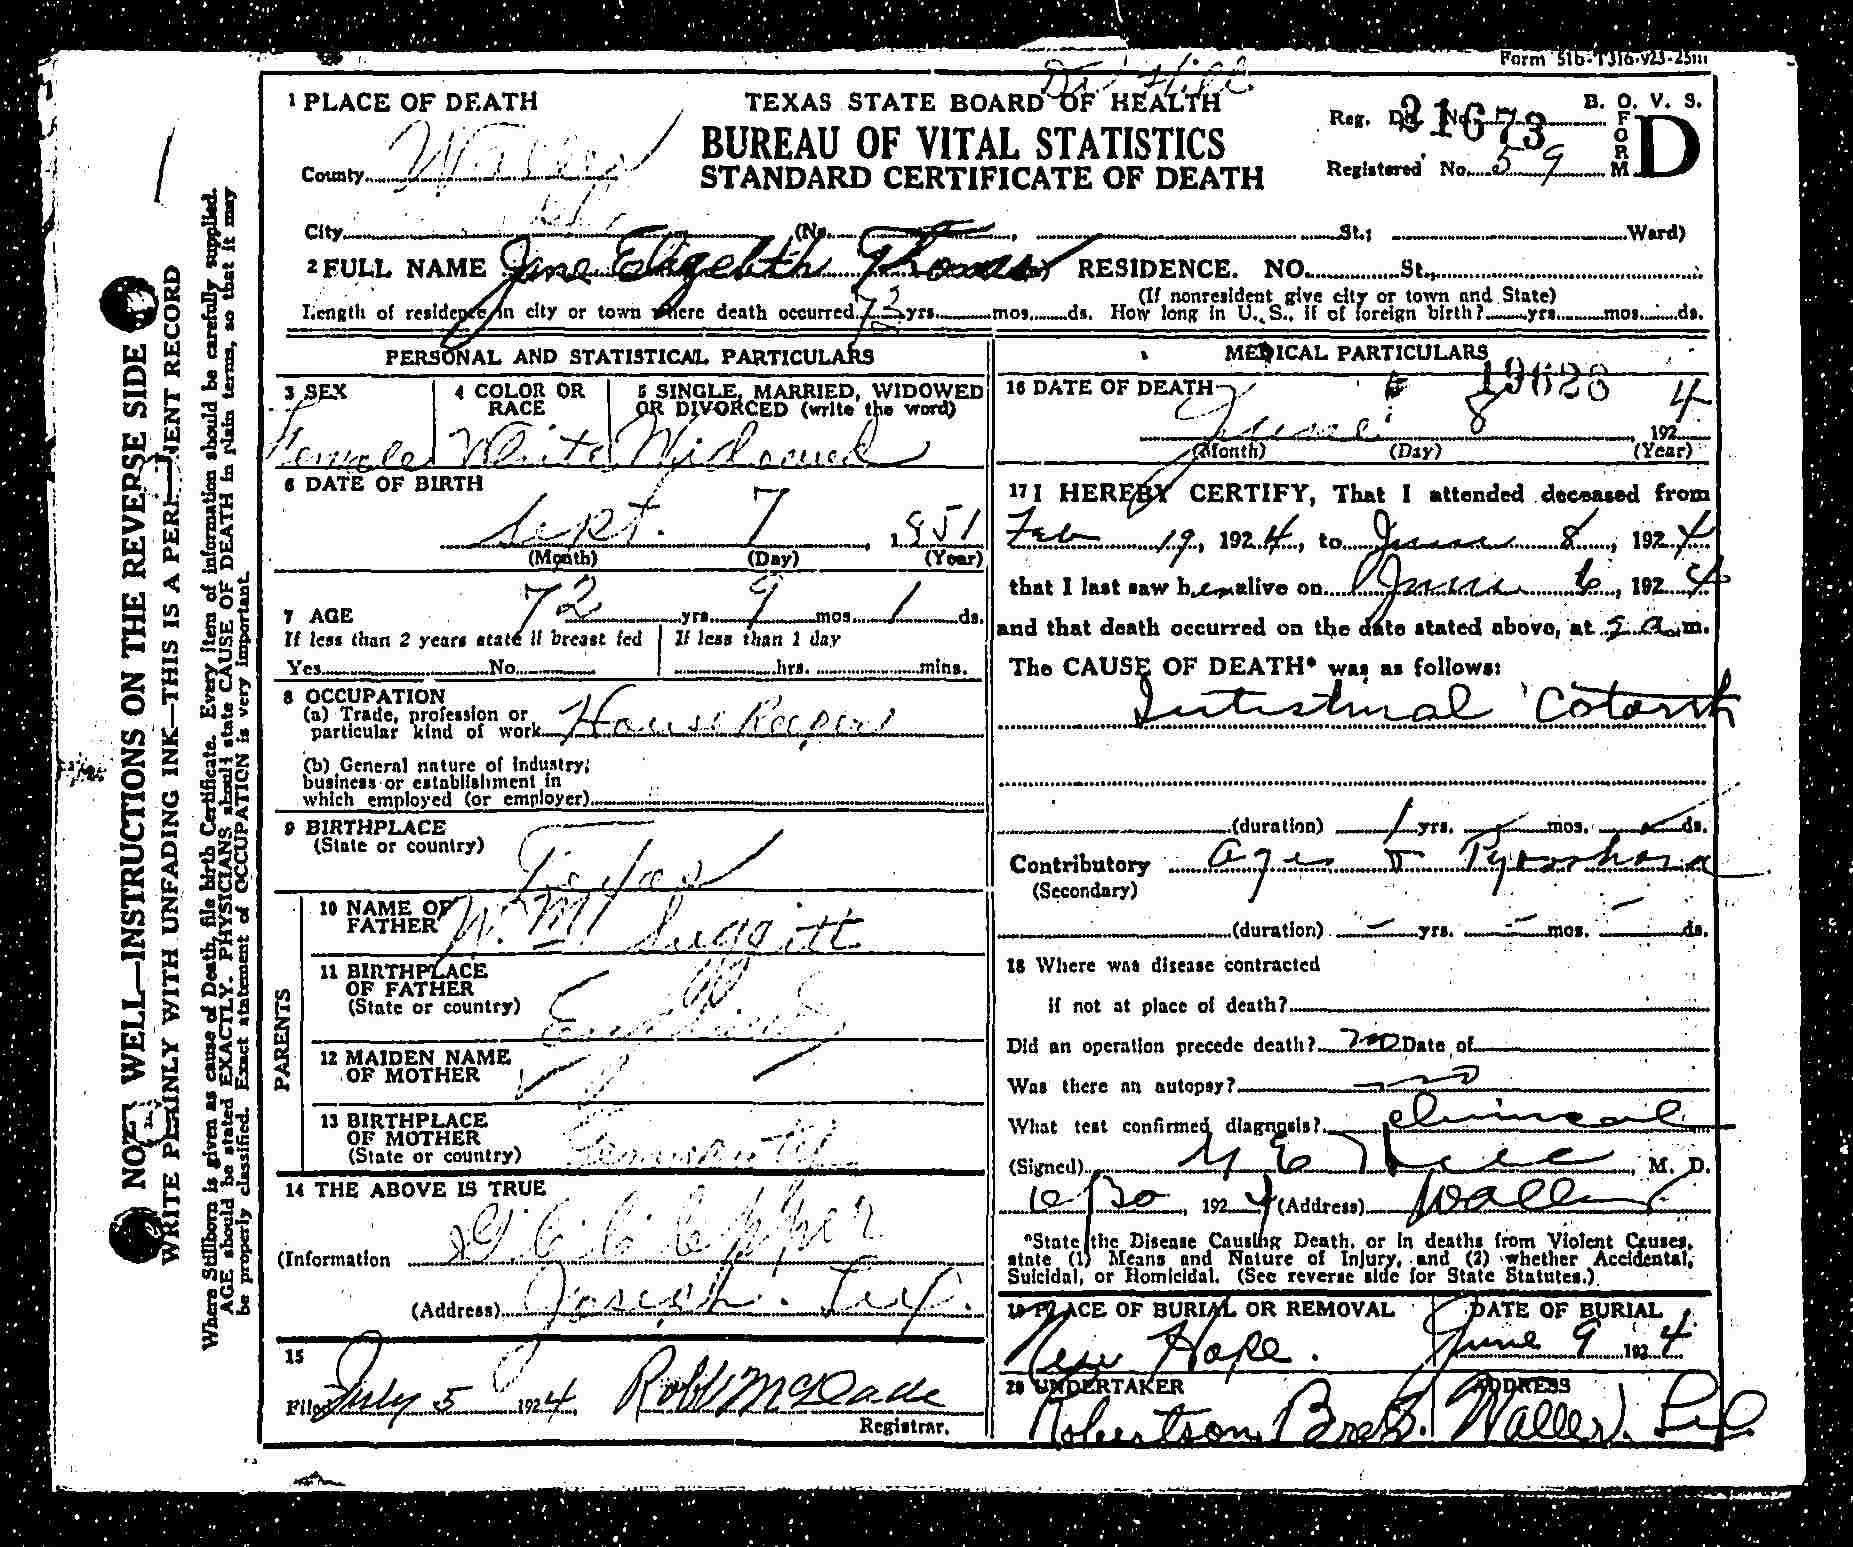 Form 51b-T316-923-25m
Dr Hill
1 PLACE OF DEATH
TEXAS STATE BOARD OF HEALTH
BUREAU OF VITAL STATISTICS
STANDARD CERTIFICATE OF DEATH
Reg. Dis. No. 31673
B. O. V. S.
FORM D
County Waller
Registered No. 59
City (No. , St.; Ward)
2 FULL NAME Jane Elizebith Thomas RESIDENCE. NO. St.,
(If nonresident give city or town and State)
Length of residence in city or town where death occurred 72 yrs. mos. ds. How long in U. S., if of foreign birth? yrs. mos. ds.
PERSONAL AND STATISTICAL PARTICULARS
3 SEX
Female
4 COLOR OR RACE
White
5 SINGLE, MARRIED, WIDOWED OR DIVORCED (write the word)
Widowed
6 DATE OF BIRTH
Sept. 7, 1851
(Month) (Day) (Year)
7 AGE 72 yrs. 9 mos. 1 ds.
If less than 2 years state if breast fed
Yes No
If less than 1 day
hrs. mins.
8 OCCUPATION
(a) Trade, profession or
particular kind of work House Keeper
(b) General nature of industry,
business or establishment in
which employed (or employer)
9 BIRTHPLACE
(State or country)
Texas
PARENTS
10 NAME OF FATHER
W. M. Suggitt
11 BIRTHPLACE
OF FATHER
(State or country)
England
12 MAIDEN NAME
OF MOTHER
13 BIRTHPLACE
OF MOTHER
(State or country)
14 THE ABOVE IS TRUE
(Information
(Address) Joseph. Tex.
15
Filed July 5 1924, Robt McDade
Registrar.
MEDICAL PARTICULARS
19628
16 DATE OF DEATH
June 8, 1924
(Month) (Day) (Year)
17 I HEREBY CERTIFY, That I attended deceased from
Feb 19, 1924, to June 8, 1924
that I last saw her alive on June 6, 1924
and that death occurred on the date stated above, at 5 a.m.
The CAUSE OF DEATH* was as follows:
Intistinal Cotarrh
(duration) 1 yrs. mos. ds.
Contributory Age &
(Secondary)
(duration) - yrs. - mos. - ds.
18 Where was disease contracted
if not at place of death?
Did an operation precede death? no Date of
Was there an autopsy? no
What test confirmed diagnosis? clinical
(Signed) Hill, M. D.
6/30, 1924 (Address) Waller
*State the Disease Causing Death, or in deaths from Violent Causes,
state (1) Means and Nature of Injury, and (2) whether Accidental,
Suicidal, or Homicidal. (See reverse side for State Statutes.)
19 PLACE OF BURIAL OR REMOVAL
New Hope.
DATE OF BURIAL
June 9 1924
20 UNDERTAKER
Robertson Bros.
ADDRESS
Waller, Tex.
NOTE WELL—INSTRUCTIONS ON THE REVERSE SIDE
WRITE PLAINLY WITH UNFADING INK—THIS IS A PERMANENT RECORD
Where Stillborn is given as cause of Death, file birth Certificate. Every item of information should be carefully supplied.
AGE should be stated EXACTLY. PHYSICIANS should state CAUSE OF DEATH in plain terms, so that it may
be properly classified. Exact statement of OCCUPATION is very important.